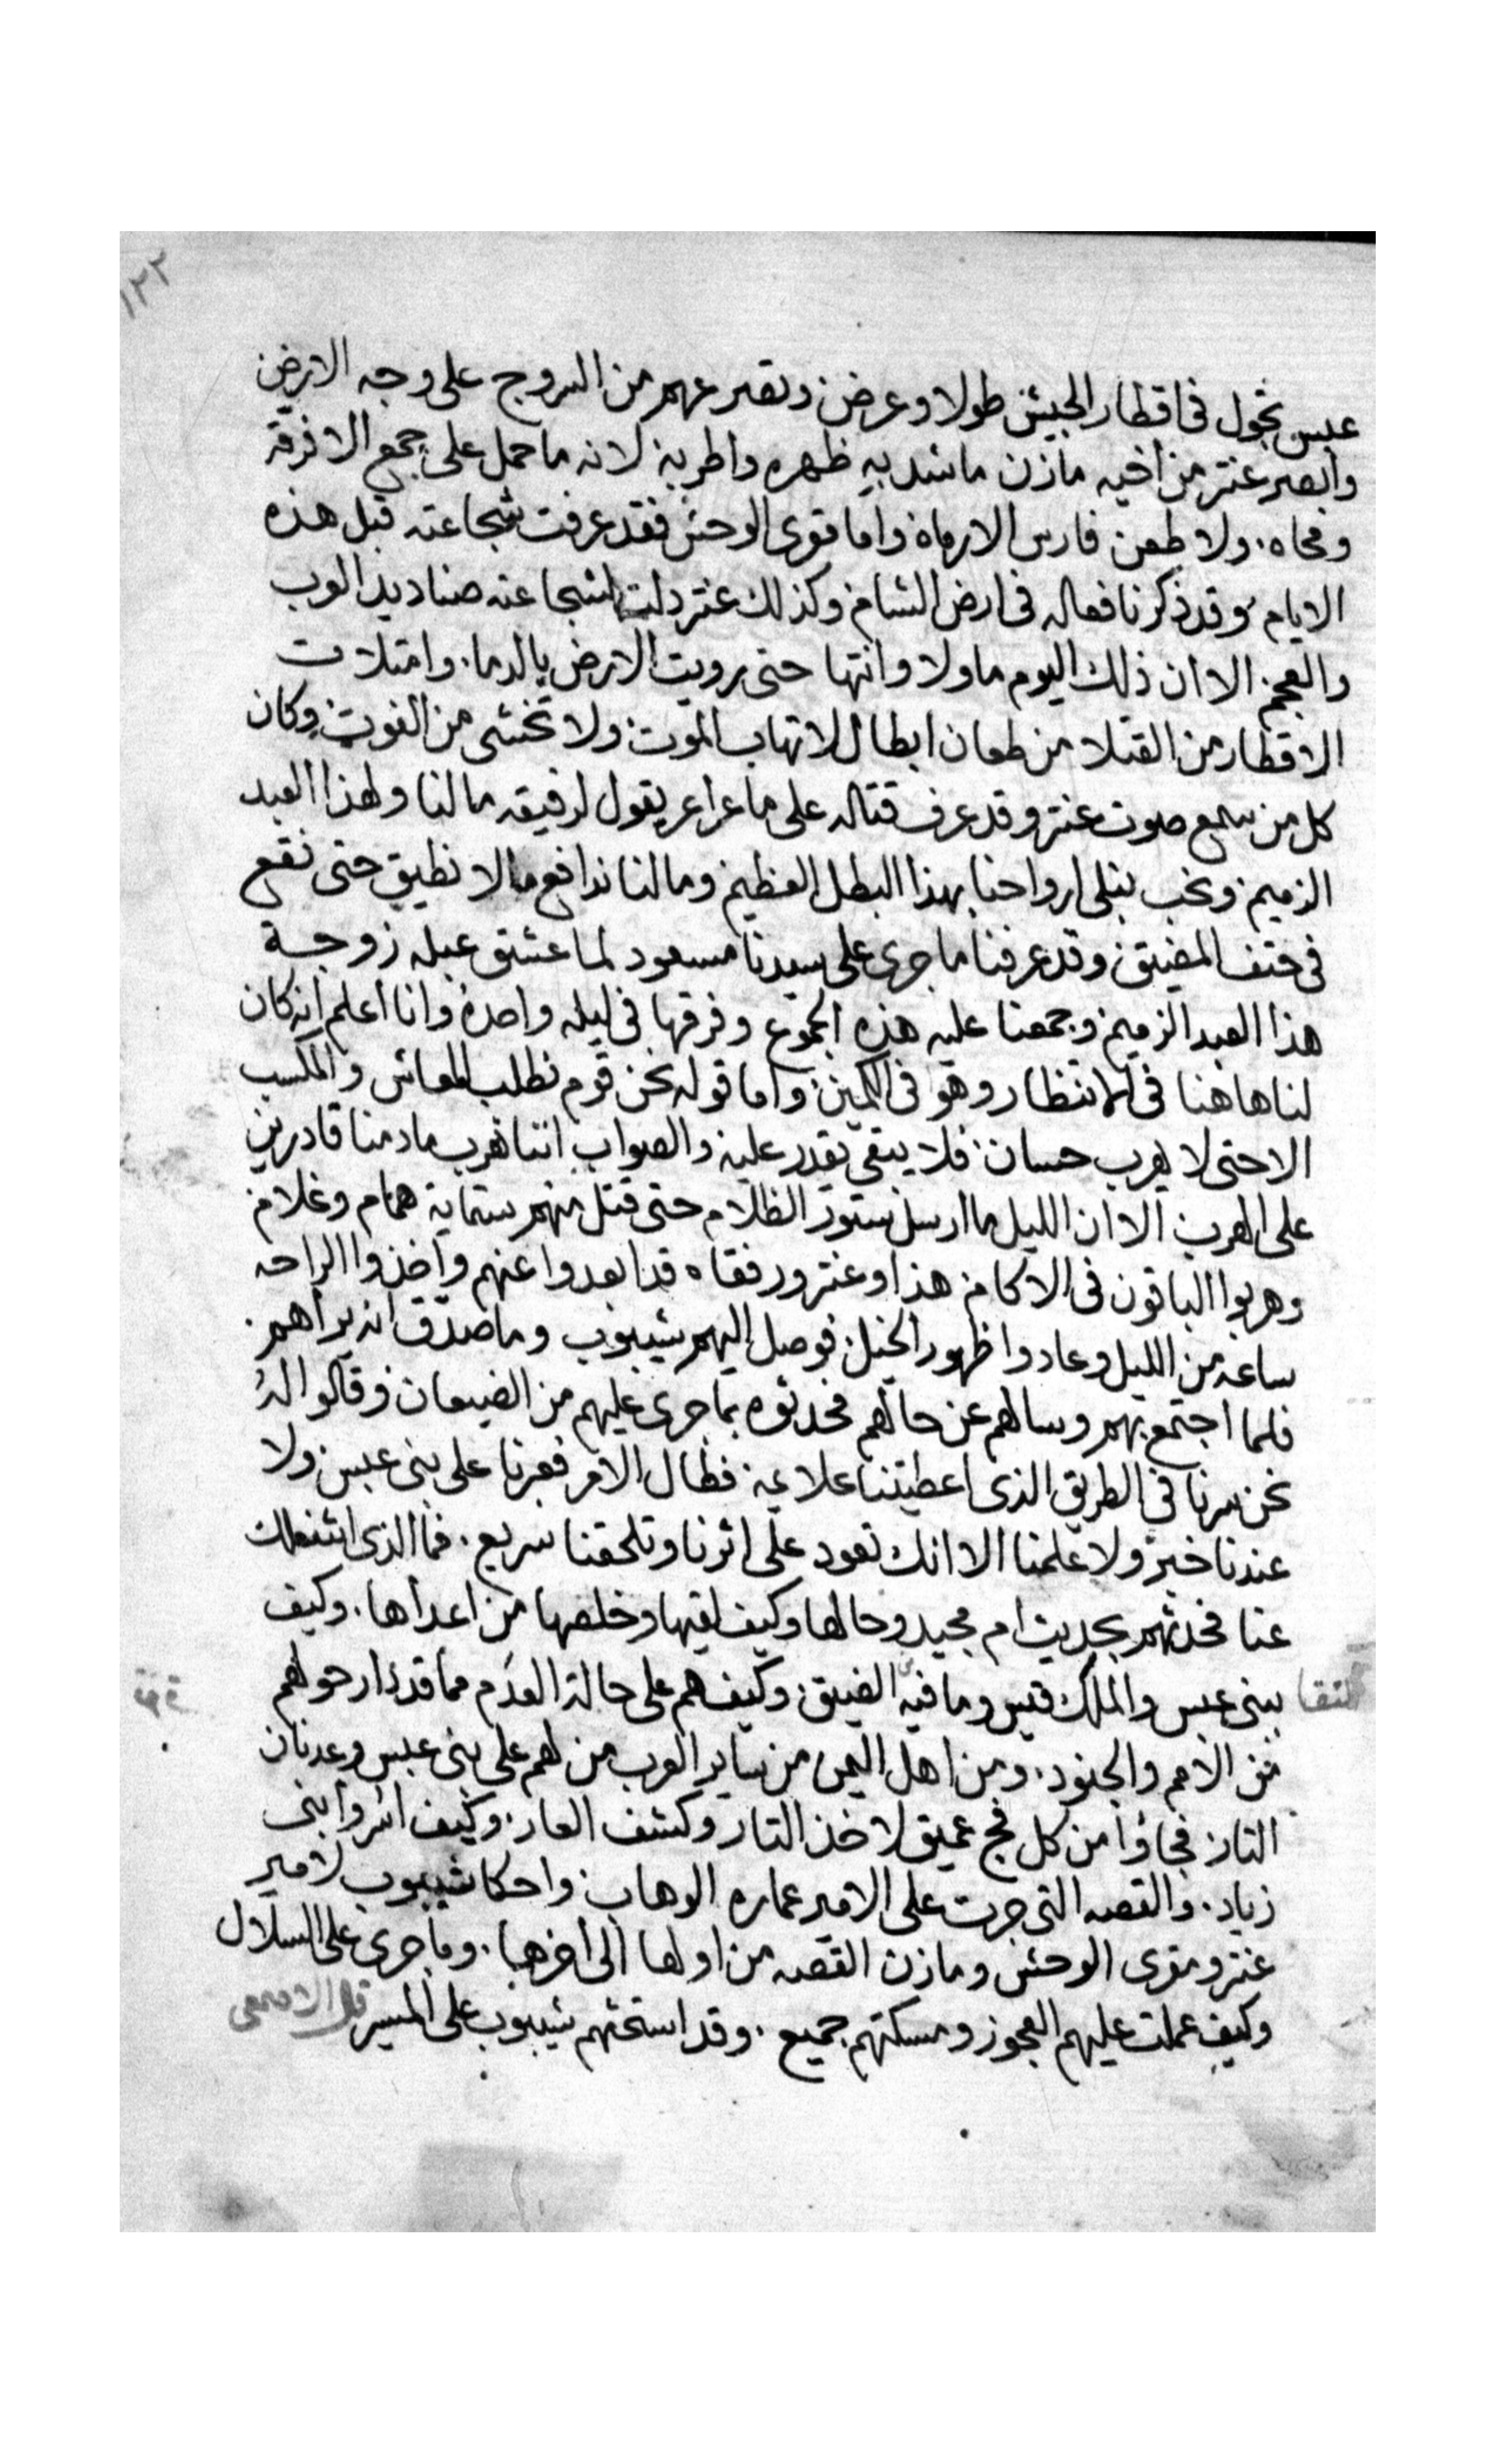 ١٢٢
عبس تجول فى اقطار الجيش طولا وعرض وتصرعهم من السروج على وجه الارض
وابصر عنتر من اخيه مازن ماشد به ظهره واطربه لانه ما حمل على جمع الا فرقه
ومحاه ولا طعن فارس الا رماه واما مقرى الوحش فقد عرفت شجاعته قبل هذه
الايام وقد ذكرنا فعاله فى ارض الشام وكذلك عنتر دلت لشجاعته صناديد العرب
والعجم الا ان ذلك اليوم ما ولا وانتها حتى رويت الارض بالدما وامتلات
الاقطار من القتلا من طعان ابطال لا تهاب الموت ولا تخشى من الفوت وكان
كل من سمع صوت عنتر وقد عرف قتاله على ماعراعر يقول لرفيقه مالنا ولهذا العبد
الزميم ونحب نبلى ارواحنا بهذا البطل العظيم ومالنا ندافع مالا نطيق حتى نقع
فى حتف المضيق وقد عرفنا ما جرى على سيدنا مسعود لما عشق عبله زوجة
هذا العبد الزميم وجمعنا عليه هذه الجموع وفرقها فى ليله واحدة وانا اعلم انه كان
لنا هاهنا فى الانتظار وهو فى الكمين واما قوله نحن قوم نطلب المعاش والمكسب
الا حتى لا يهرب حسان فلا يبقى يقدر عليه والصواب اننا نهرب مادمنا قادرين
على الهرب الا ان الليل ما ارسل ستور الظلام حتى قتل منهم ستماية همام وغلام
وهربوا الباقون فى الاكام هذا وعنتر ورفقاه قد ابعدوا عنهم واخذوا الراحه
ساعه من الليل وعادوا ظهور الخيل فوصل اليهم شيبوب وما صدق انه يراهم
فلما اجتمع بهم وسالهم عن حالهم فحدثوه بما جرى عليهم من الضيعان وقالوا له
نحن سرنا فى الطريق الذى اعطيتنا علايمه فطال الامر فعبرنا على بنى عبس ولا
عندنا خبر ولا علمنا الا انك تعود على اثرنا وتلحقنا سريع فما الذى اشغلك
عنا فحدثهم بحديث ام مجيد وحالها وكيف لقيها وخلصها من اعداها وكيف
التقا ببنى عبس والملك قيس وما فيه الضيق وكيف هم على حالة العدم مما قد دار حولهم
من الامم والجنود ومن اهل اليمن من ساير العرب من لهم على بنى عبس وعدنان
التار فجاؤا من كل فج عميق لاخذ التار وكشف العار وكيف اسروا بنى
زياد والقصه التى جرت على الامير عماره الوهاب واحكا شيبوب لامير
عنتر ومقرى الوحش ومازن القصه من اولها الى اخرها وما جرى على السلال
وكيف عملت عليهم العجوز ومسكتهم جميع وقد استحثهم شيبوب على المسير قال الاصمعى